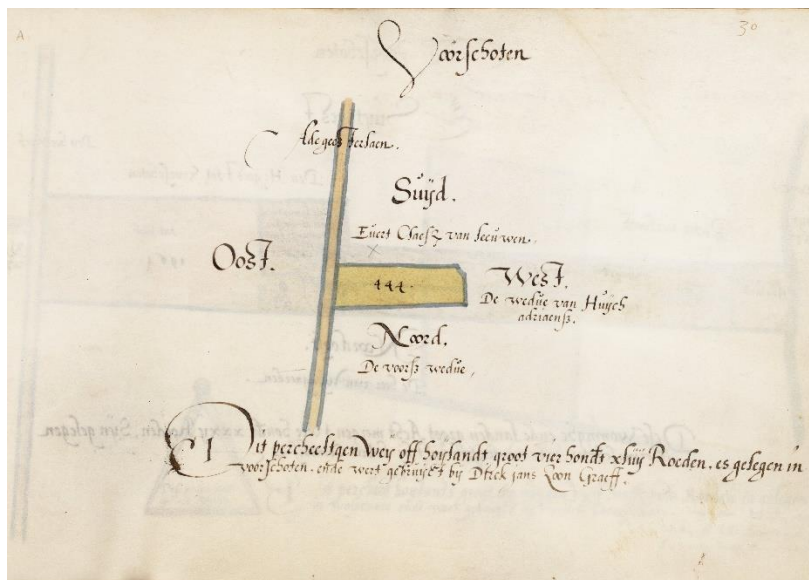 A
30
Voorschoten
Adegeesterlaen.
Suijd.
Evert Claesz van Leeuwen.
Oost.
444.
West.
De wedue van Huijch
adriaensz.
Noord.
De voorsz wedue,
Dit percheeltgen Weij off hoylandt groot vier hondt xliiij Roeden. es gelegen in
voorschoten. ende wert gebruijct bij Dirck jans Loon Graeff.